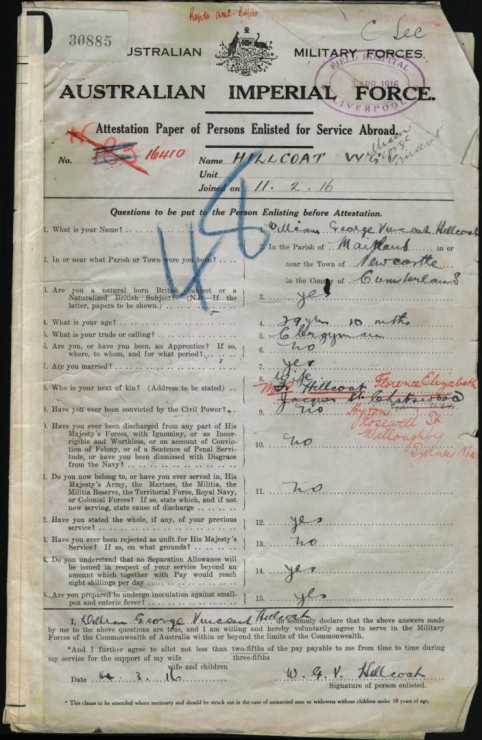 30885
C See
AUSTRALIAN MILITARY FORCES.
FIELD HOSPITAL
APR 1916
LIVERPOOL
AUSTRALIAN IMPERIAL FORCE.
Attestation Paper of Persons Enlisted for Service Abroad.
No. 16410 Name HILLCOAT William George Vincent
Unit
Joined on 11.2.16
Questions to be put to the Person Enlisting before Attestation.
1. What is your Name? William George Vincent Hillcoat
2. In or near what Parish or Town were you born? In the Parish of Maitland in or
near the Town of Newcastle
in the County of Cumberland
3. Are you a natural born British Subject or a
Naturalized British Subject? (N.B.—If the
latter, papers to be shown.) 3. yes
4. What is your age? 4. 29 yrs 10 mths
5. What is your trade or calling? 5. Clergyman
6. Are you, or have you been, an Apprentice? If so,
where, to whom, and for what period? 6. no
7. Are you married? 7. yes
8. Who is your next of kin? (Address to be stated) 8. Wife
Hillcoat Florence Elizabeth
Jacques St Chatswood
Roswell St
Willoughby
Sydney
9. Have you ever been convicted by the Civil Power? 9. no
Have you ever been discharged from any part of His
Majesty's Forces, with Ignominy, or as Incor-
rigible and Worthless, or on account of Convic-
tion of Felony, or of a Sentence of Penal Servi-
tude, or have you been dismissed with Disgrace
from the Navy? 10. no
Do you now belong to, or have you ever served in, His
Majesty's Army, the Marines, the Militia, the
Militia Reserve, the Territorial Force, Royal Navy,
or Colonial Forces? If so, state which, and if not
now serving, state cause of discharge 11. no
Have you stated the whole, if any, of your previous
service? 12. yes
Have you ever been rejected as unfit for His Majesty's
Service? If so, on what grounds? 13. no
Do you understand that no Separation Allowance will
be issued in respect of your service beyond an
amount which together with Pay would reach
eight shillings per day 14. yes
Are you prepared to undergo inoculation against small-
pox and enteric fever? 15. yes
48
I, William George Vincent Hillcoat do solemnly declare that the above answers made
by me to the above questions are true, and I am willing and hereby voluntarily agree to serve in the Military
Forces of the Commonwealth of Australia within or beyond the limits of the Commonwealth.
*And I further agree to allot not less than two-fifths of the pay payable to me from time to time during
three-fifths
my service for the support of my wife
wife and children
Date 3. 16 W. G. V. Hillcoat
Signature of person enlisted.
* This clause to be amended where necessary and should be struck out in the case of unmarried men or widowers without children under 18 years of age.